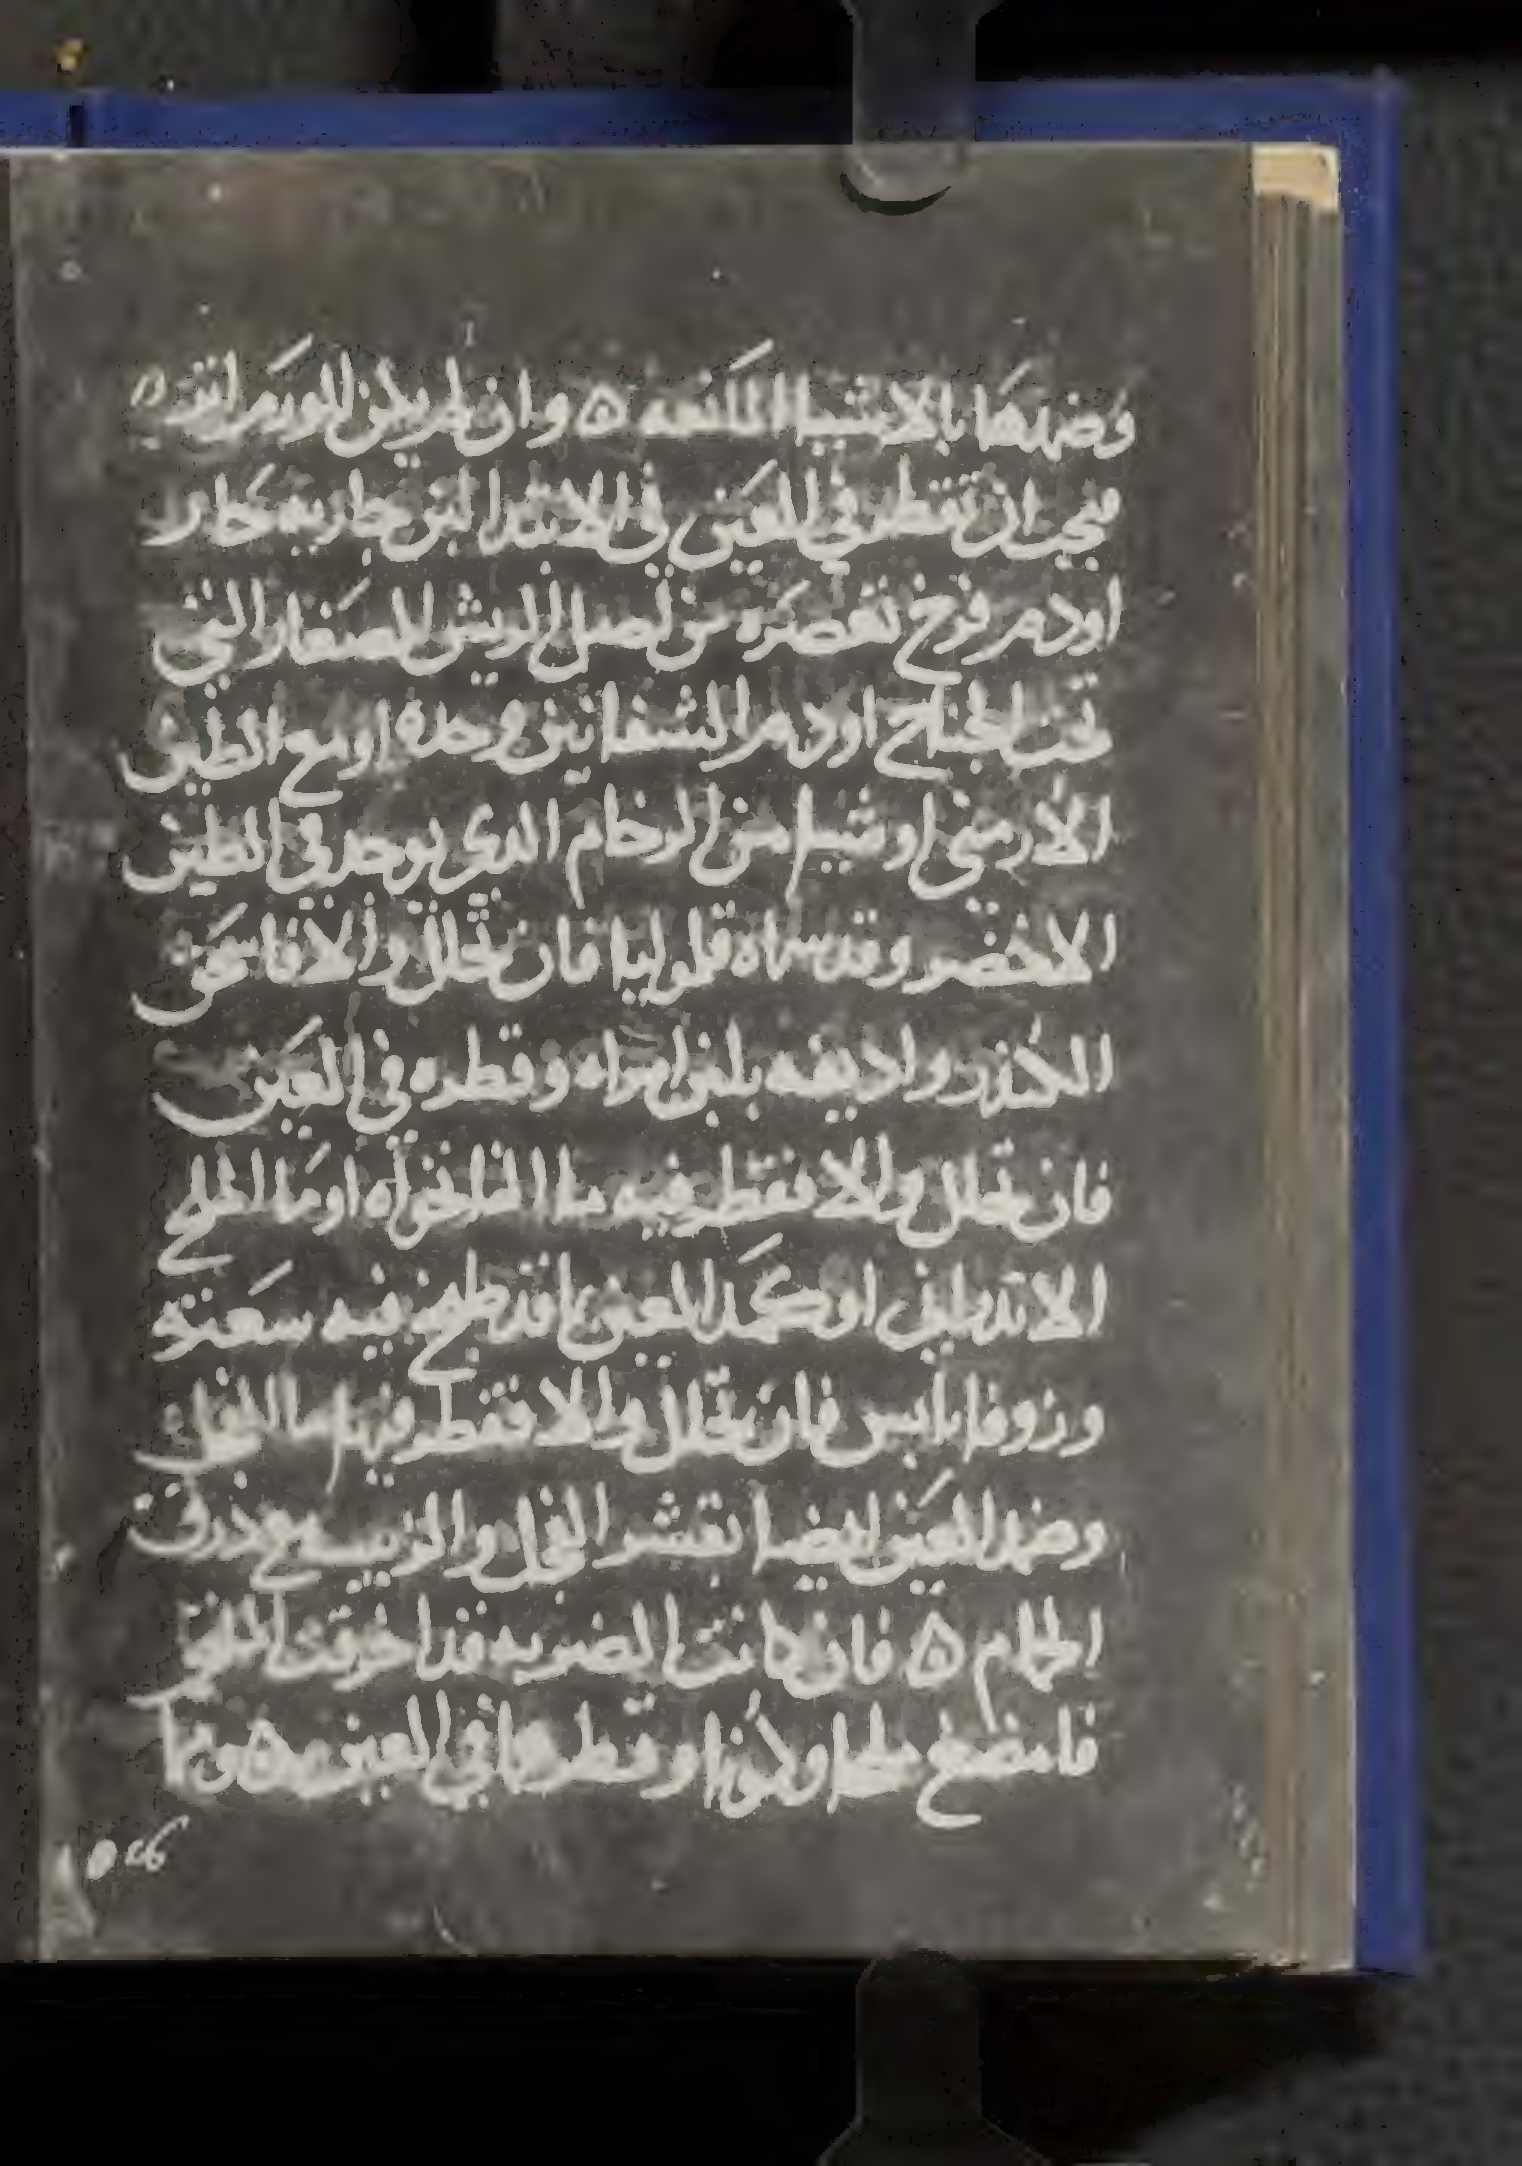 وضمدها بالاشيا المانعه ٥ وان طريطن الورم
فيجب ان تقطر في العين في الابتدا لبن جاريه حار
او دم فرخ تعصره من اصل الريش الصغار التي
تحت الجناح او دم الشفانين وحده او مع الطين
الارمني او شيا من الرخام الذي يوجد في الطين
الاخضر وقد سماه قلوليا فان تحلل والا فاسحق
الكندر واديفه بلبن امراه وقطره في العين
فان تحلل والا فقطر فيه ما النانخواه او ما الملح
الاندراني او كمد العين بما قد طبخ فيه سعتر
وزوفا يابس فان تحلل والا فقطر فيها ما الفجل
وضمد العين ايضا بقشر الفجل والزبيب مع ذرق
الحمام ٥ فان كانت الضربه قد اخرقت الملتحم
فامضغ ملحا وكمونا وقطرها في العين ٥ وما